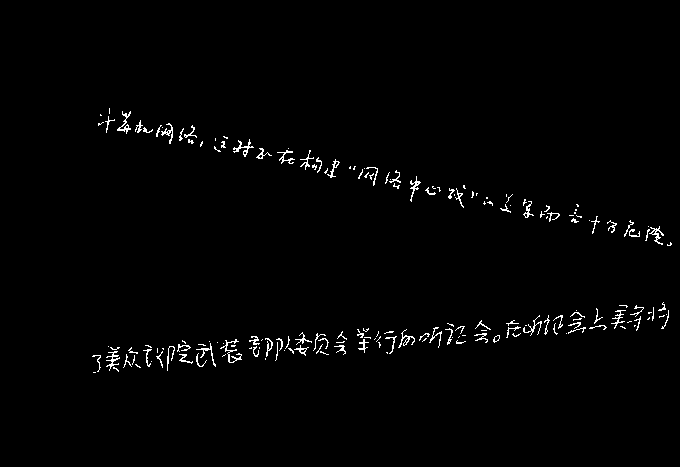 计算机网络，这对正在构建“网络中心战”的美军而言十分危险。
了美众议院武装部队委员会举行的听证会。在听证会上美军将